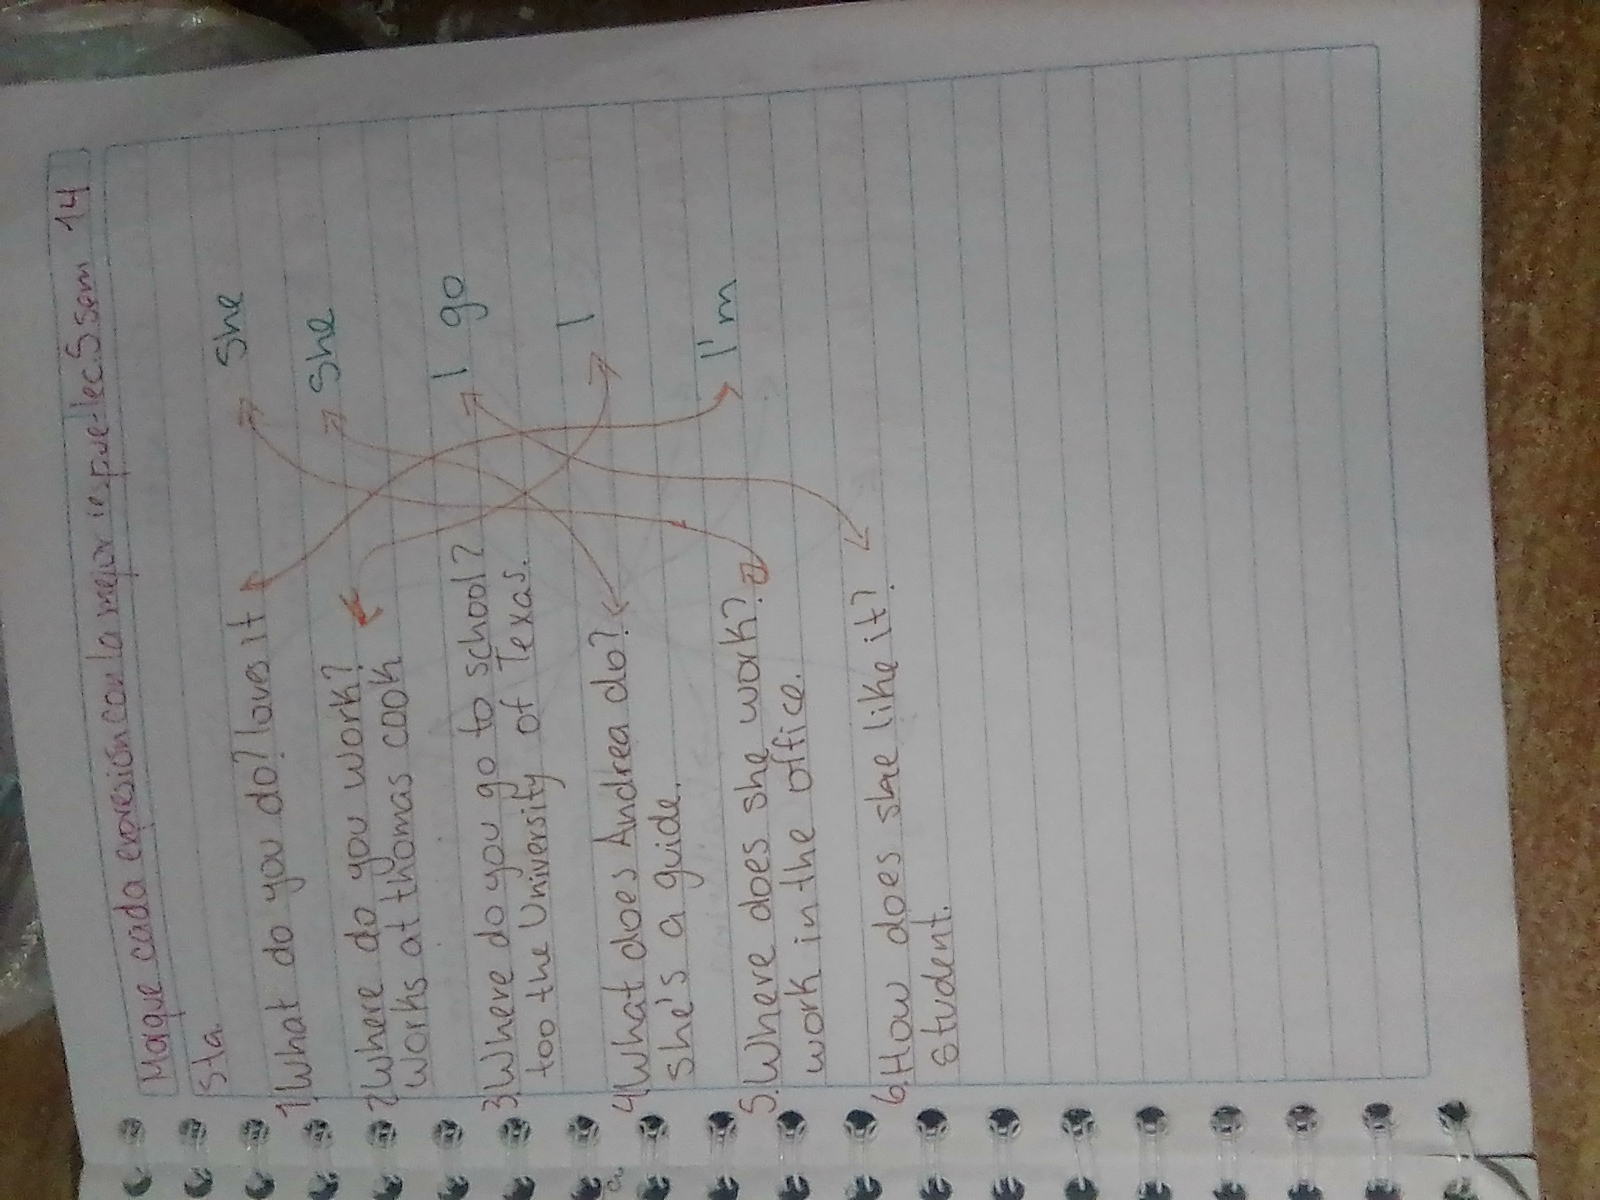 Marque cada expresión con la mejor respue- lec.5 sem 14
sta.
1. What do you do? loves it She
2. Where do you work? She
works at thomas cook
3. Where do you go to school? I go
too the University of Texas.
4. What does Andrea do? I
she's a guide.
5. Where does she work? I'm
work in the office.
6. How does she like it?
student.